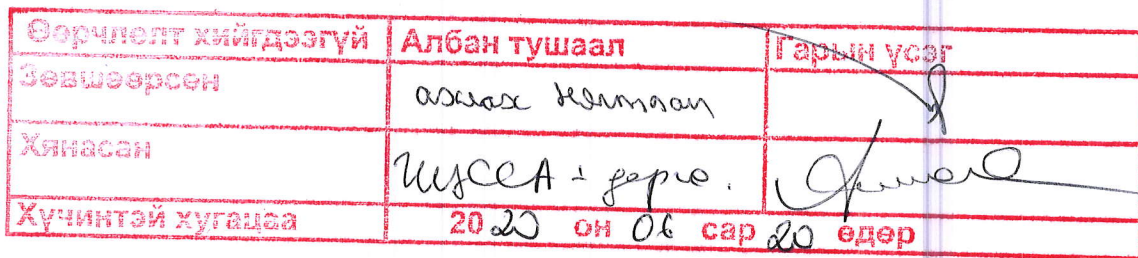 Өөрчлөлт хийгдээгүй Албан тушаал Гарын үсэг
Зөвшөөрсөн ахлах нягтлан
Хянасан дарга.
Хүчинтэй хугацаа 2020 он 06 сар 20 өдөр